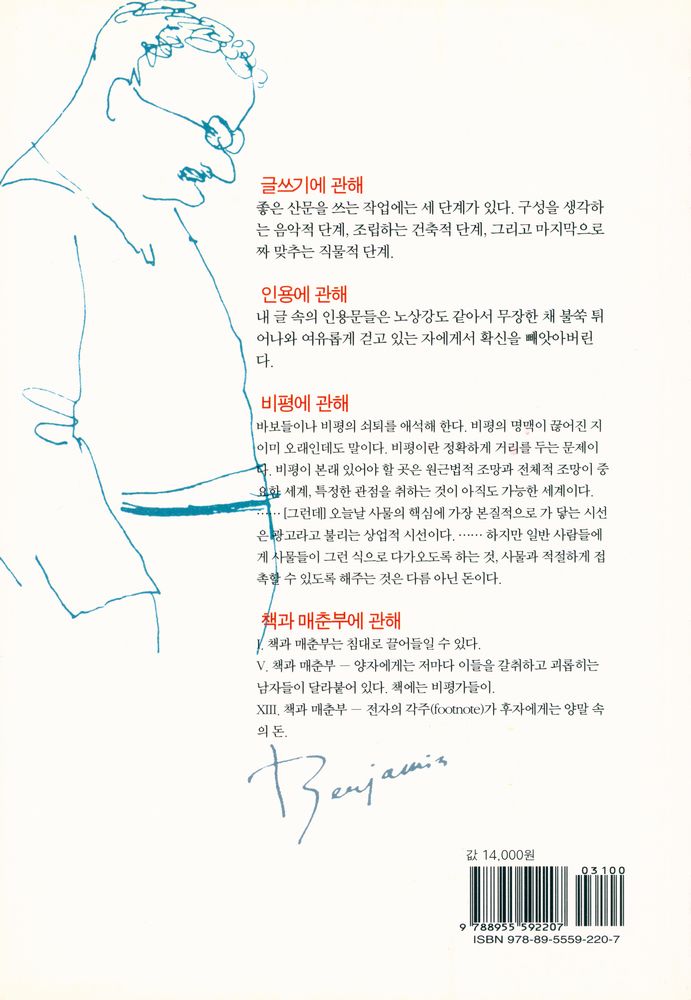 글쓰기에 관해
좋은 산문을 쓰는 작업에는 세 단계가 있다. 구성을 생각하
는 음악적 단계, 조립하는 건축적 단계, 그리고 마지막으로
짜 맞추는 직물적 단계.
인용에 관해
내 글 속의 인용문들은 노상강도 같아서 무장한 채 불쑥 튀
어나와 여유롭게 걷고 있는 자에게서 확신을 빼앗아버린
다.
비평에 관해
바보들이나 비평의 쇠퇴를 애석해 한다. 비평의 명맥이 끊어진 지
이미 오래인데도 말이다. 비평이란 정확하게 거리를 두는 문제이
다. 비평이 본래 있어야 할 곳은 원근법적 조망과 전체적 조망이 중
요한 세계, 특정한 관점을 취하는 것이 아직도 가능한 세계이다.
…… [그런데] 오늘날 사물의 핵심에 가장 본질적으로 가 닿는 시선
은 광고라고 불리는 상업적 시선이다. …… 하지만 일반 사람들에
게 사물들이 그런 식으로 다가오도록 하는 것, 사물과 적절하게 접
촉할 수 있도록 해주는 것은 다름 아닌 돈이다.
책과 매춘부에 관해
I. 책과 매춘부는 침대로 끌어들일 수 있다.
V. 책과 매춘부 — 양자에게는 저마다 이들을 갈취하고 괴롭히는
남자들이 달라붙어 있다. 책에는 비평가들이.
XIII. 책과 매춘부 — 전자의 각주(footnote)가 후자에게는 양말 속
의 돈.
Benjamin
값 14,000원
03100
9 788955 592207
ISBN 978-89-5559-220-7